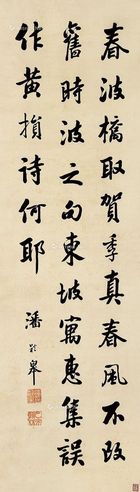 春波橋取賀季真春風不改
舊時波之句東坡寓惠集誤
作黃損詩何耶
潘齡皋